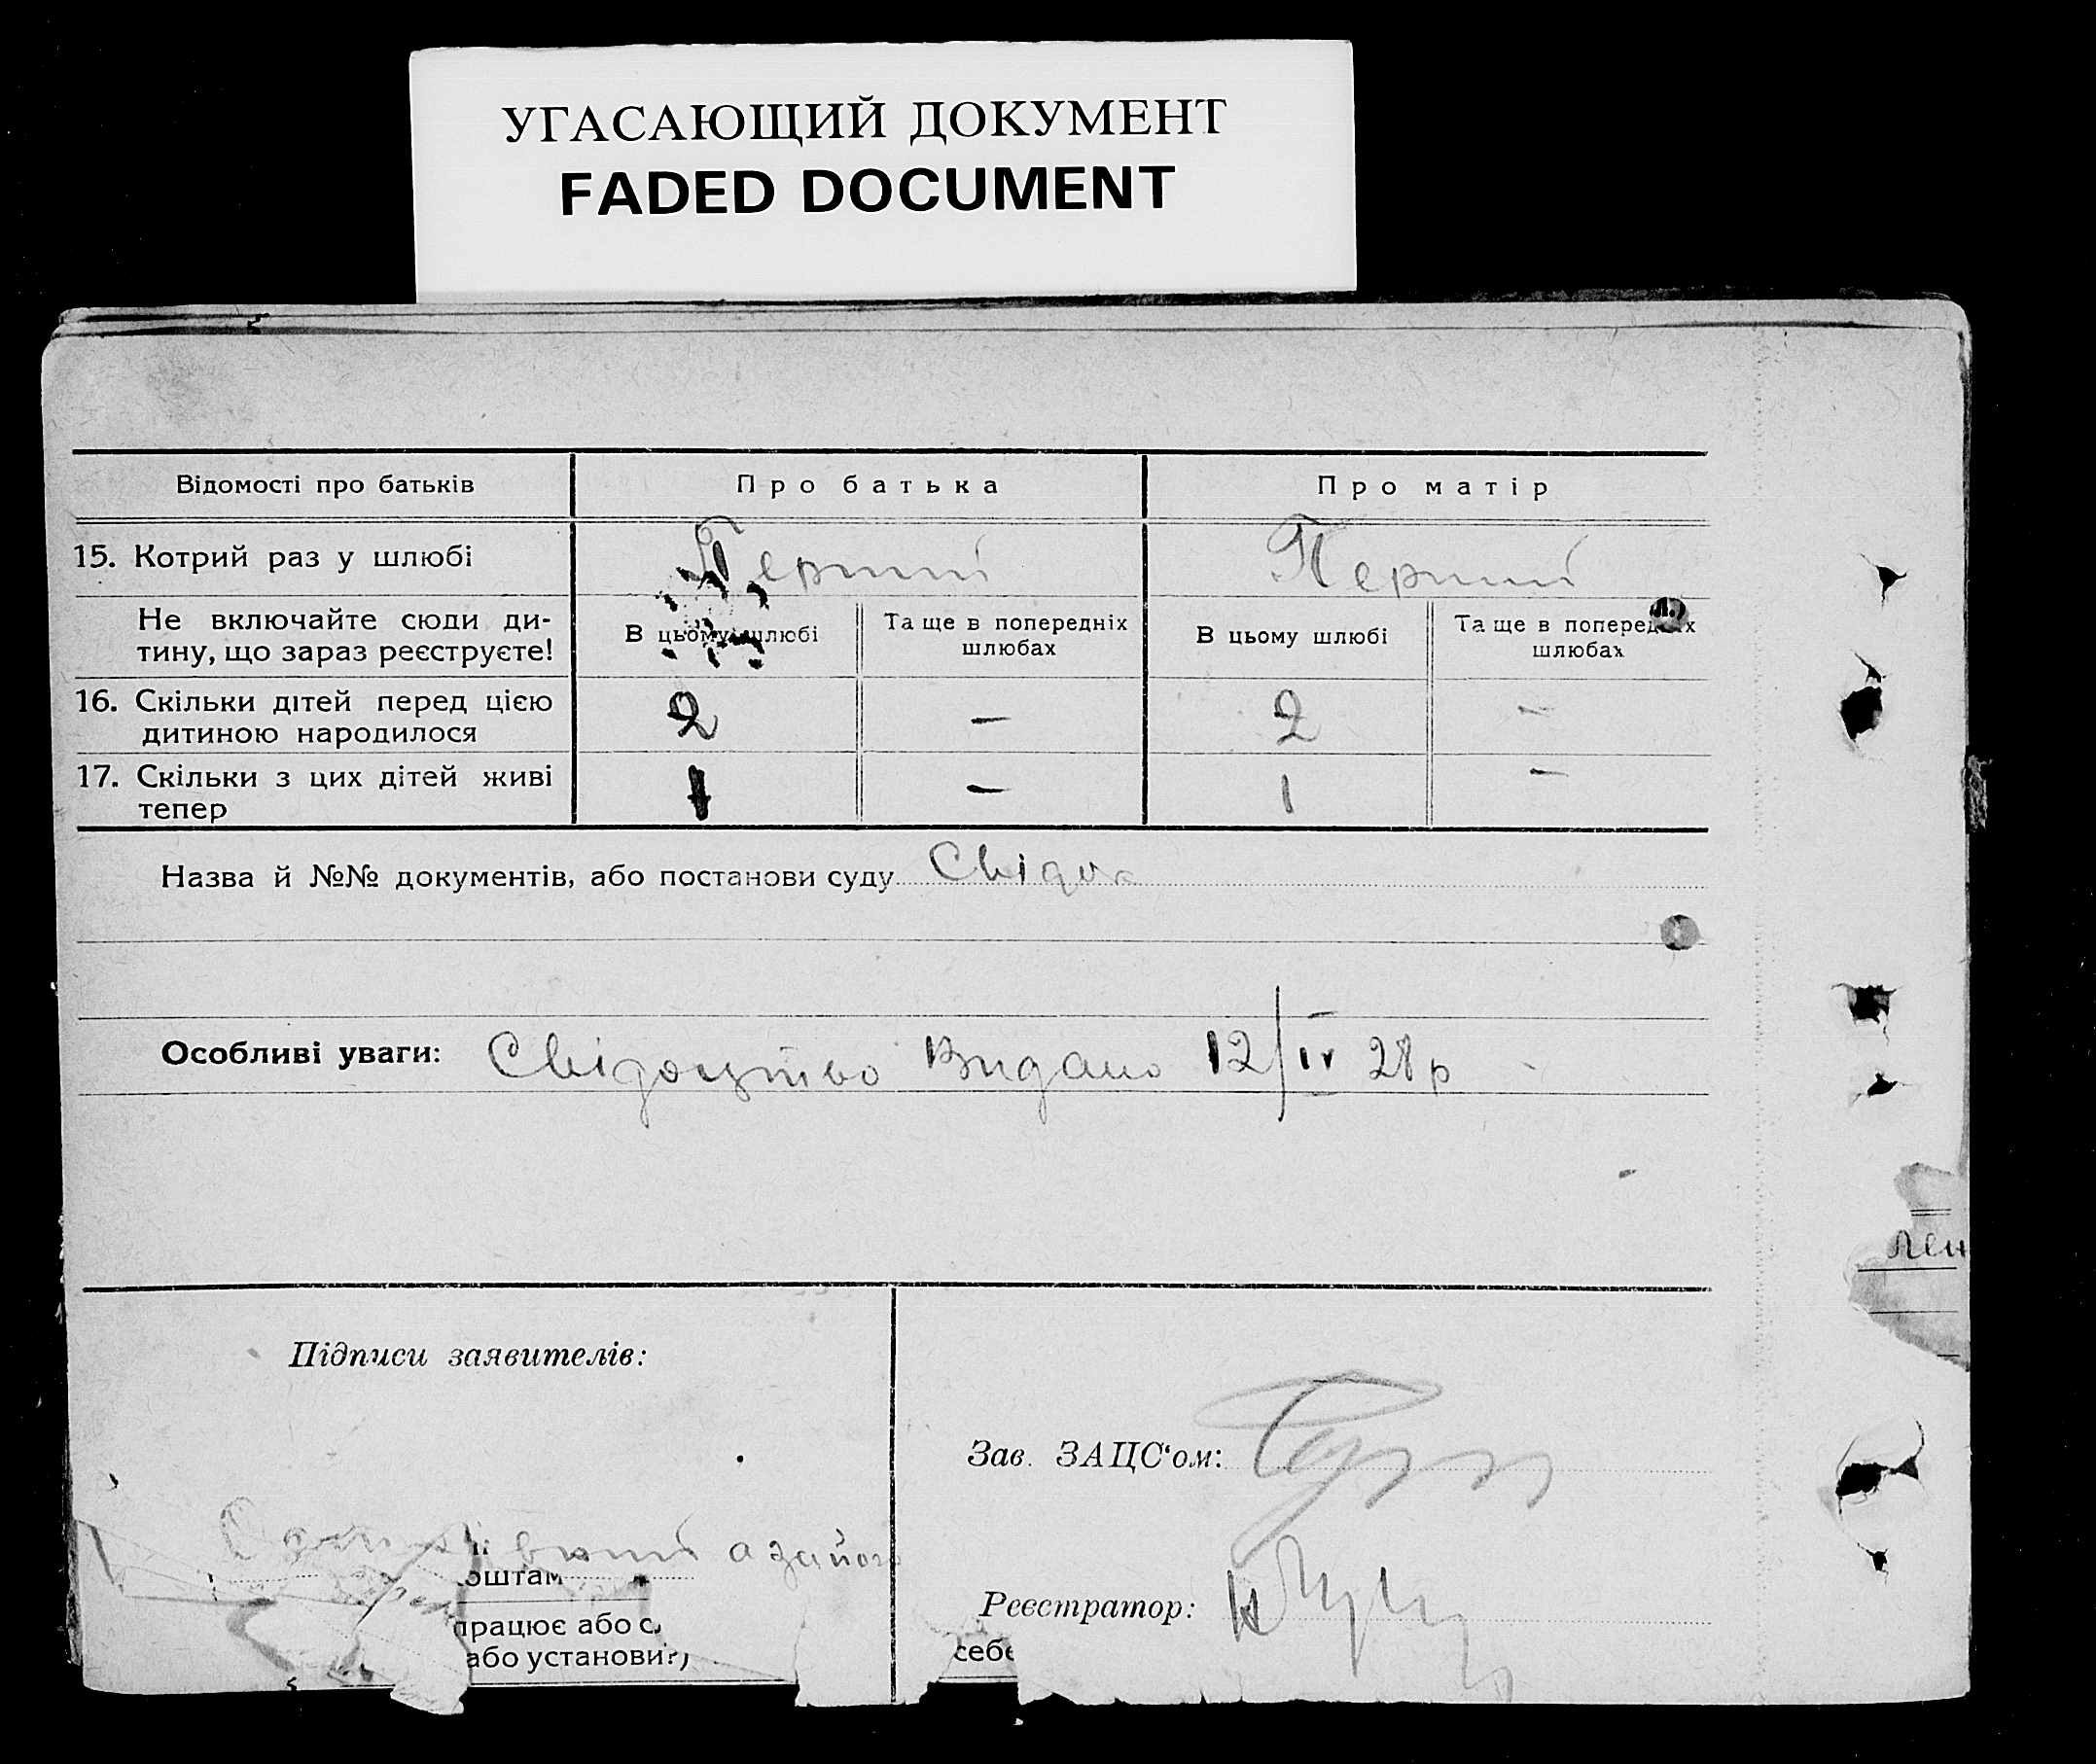 УГАСАЮЩИЙ ДОКУМЕНТ
FADED DOCUMENT
Відомості про батьків
Про батька
Про матір
15. Котрий раз у шлюбі
Перший
Перший
Не включайте сюди ди-
тину, що зараз реєструєте!
В цьому шлюбі
Та ще в попередніх
шлюбах
В цьому шлюбі
Та ще в попередніх
шлюбах
16. Скільки дітей перед цією
дитиною народилося
2
—
2
—
17. Скільки з цих дітей живі
тепер
1
—
1
—
Назва й №№ документів, або постанови суду
Особливі уваги: Свідоцтво Видано 12/IV 28 р
лен
Підписи заявителів:
Зав. ЗАЦС‘ом:
оштам
Реєстратор:
працює або с
або установи?)
себе